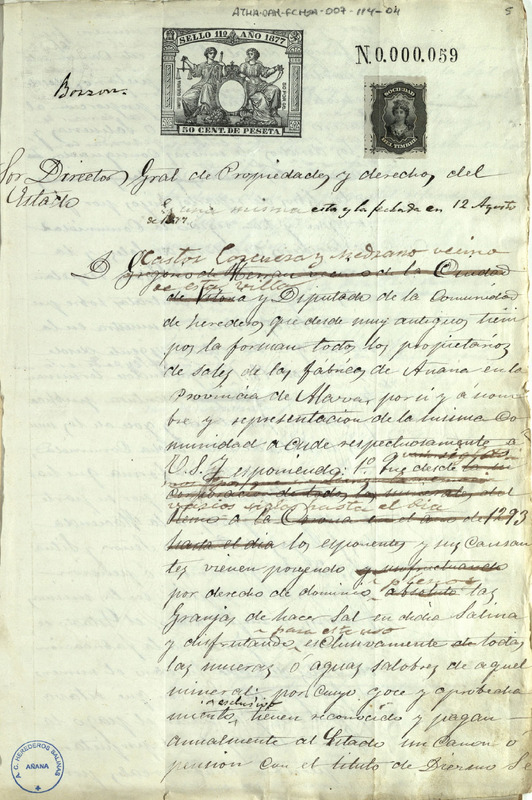 ATHA-DAH-FCHSA-007-114-04
5
SELLO 11º AÑO 1877
50 CENT. DE PESETA
N.0.000.059
SOCIEDAD
DEL TIMBRE
Borron
Sor Director Gral de Propiedades y derechos del
Estado
es una misma esta y la fechada en 12 Agosto
de 1877
D. Castor y Medrano vecino
Gregorio de vecino de la Ciudad
de esta villa
de Vitoria y Diputado de la Comunidad
de herederos que desde muy antiguos tiem
pos la forman todos los propietarios
de sales de las fábricas de Añana en la
Provincia de Alava, por sí y á nom
bre y representacion de la misma Co
munidad a Onde respectuosamente á
V.S. esponiendo: 1º que desde la su
corporacion de todos los minerales del
varios siglos hasta el dia
Reino a la Corona en el año de 1293
hasta el dia los esponentes y sus Causan
tes vienen poseyendo y usufructuando
por derecho de dominio absoluto las
pleno
Granjas de hacer Sal en dicha Salina
para este uso
y disfrutando esclusivamente de todas
las mueras ó aguas salobres de aquel
mineral: por cuyo goce y aprovecha
esclusivo
miento, tienen reconocido y pagan
anualmente al Estado un Canon o
pension con el titulo de Diezmo Se
A.C. HEREDEROS SALINAS
AÑANA